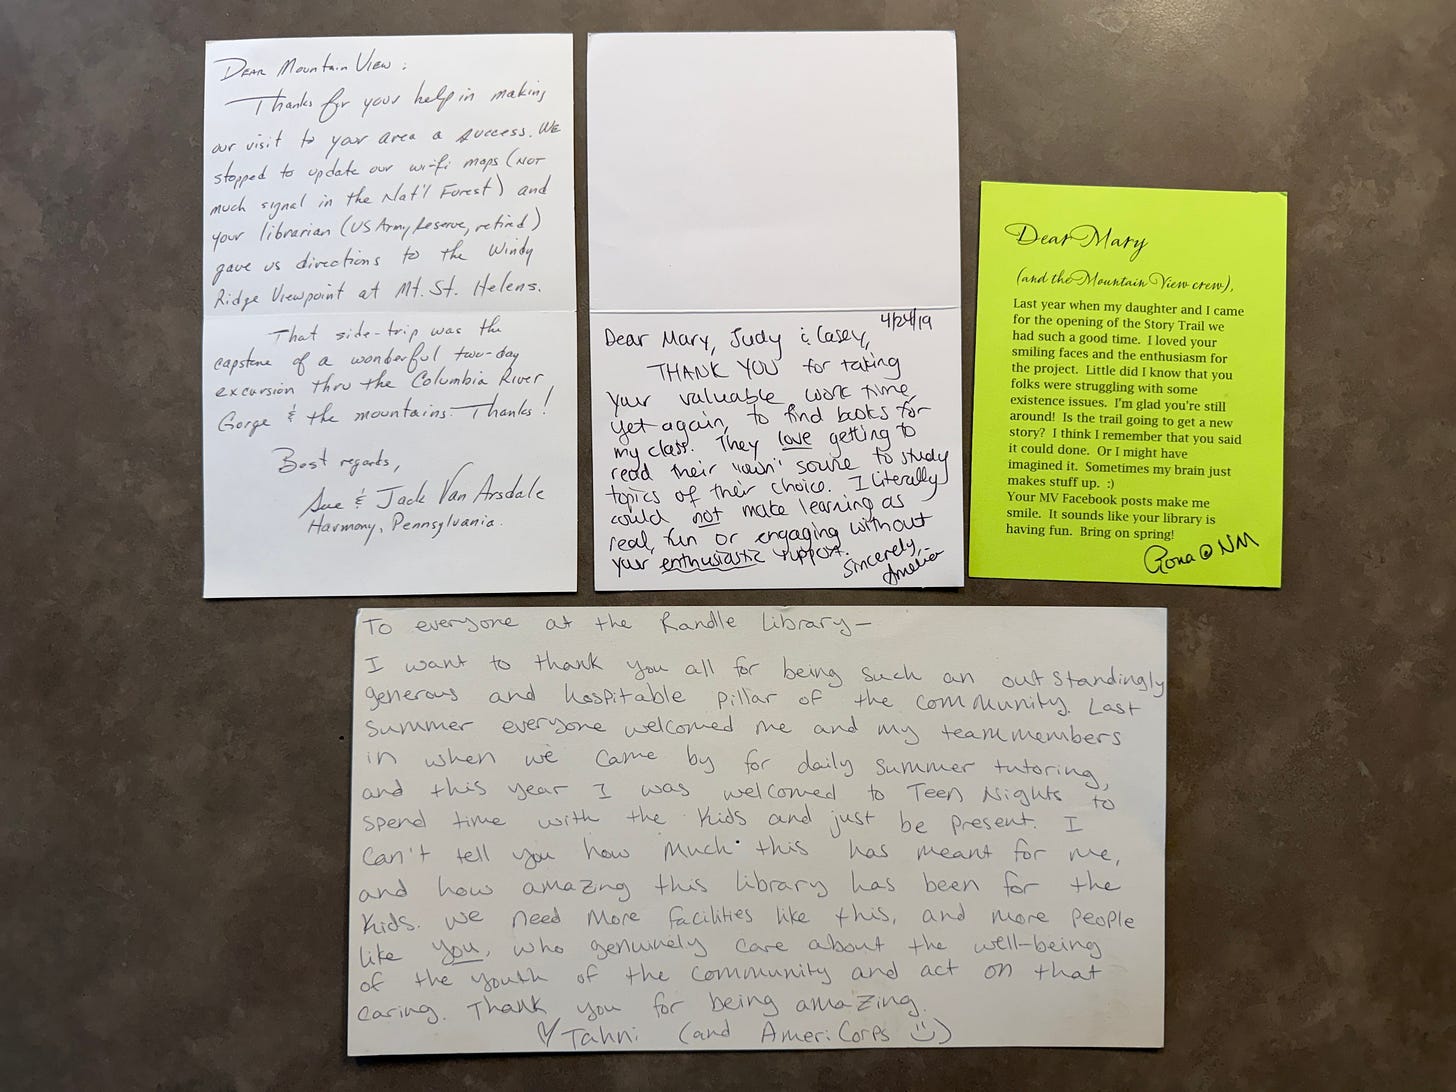 Dear Mountain View:
Thanks for your help in making
our visit to your area a success. We
stopped to update our wi-fi maps (not
much signal in the Nat'l Forest) and
your librarian (US Army Reserve, retired)
gave us directions to the Windy
Ridge Viewpoint at Mt. St. Helens.
That side-trip was the
capstone of a wonderful two-day
excursion thru the Columbia River
Gorge & the mountains. Thanks!
Best regards,
Sue & Jack Van Arsdale
Harmony, Pennsylvania.
4/24/19
Dear Mary, Judy & Casey,
THANK YOU for taking
your valuable work time,
yet again, to find books for
my class. They love getting to
read their "own" source to study
topics of their choice. I literally
could not make learning as
real, fun or engaging without
your enthusiastic support.
Sincerely,
Amelia
Dear Mary
(and the Mountain View crew),
Last year when my daughter and I came
for the opening of the Story Trail we
had such a good time. I loved your
smiling faces and the enthusiasm for
the project. Little did I know that you
folks were struggling with some
existence issues. I'm glad you're still
around! Is the trail going to get a new
story? I think I remember that you said
it could done. Or I might have
imagined it. Sometimes my brain just
makes stuff up. :)
Your MV Facebook posts make me
smile. It sounds like your library is
having fun. Bring on spring!
@ NM
To everyone at the Randle Library-
I want to thank you all for being such an outstandingly
generous and hospitable pillar of the community. Last
summer everyone welcomed me and my teammembers
in when we came by for daily summer tutoring,
and this year I was welcomed to Teen Nights to
spend time with the kids and just be present. I
can't tell you how much this has meant for me,
and how amazing this library has been for the
kids. We need more facilities like this, and more people
like you, who genuinely care about the well-being
of the youth of the community and act on that
caring. Thank you for being amazing.
♡ Tahni (and AmeriCorps :))